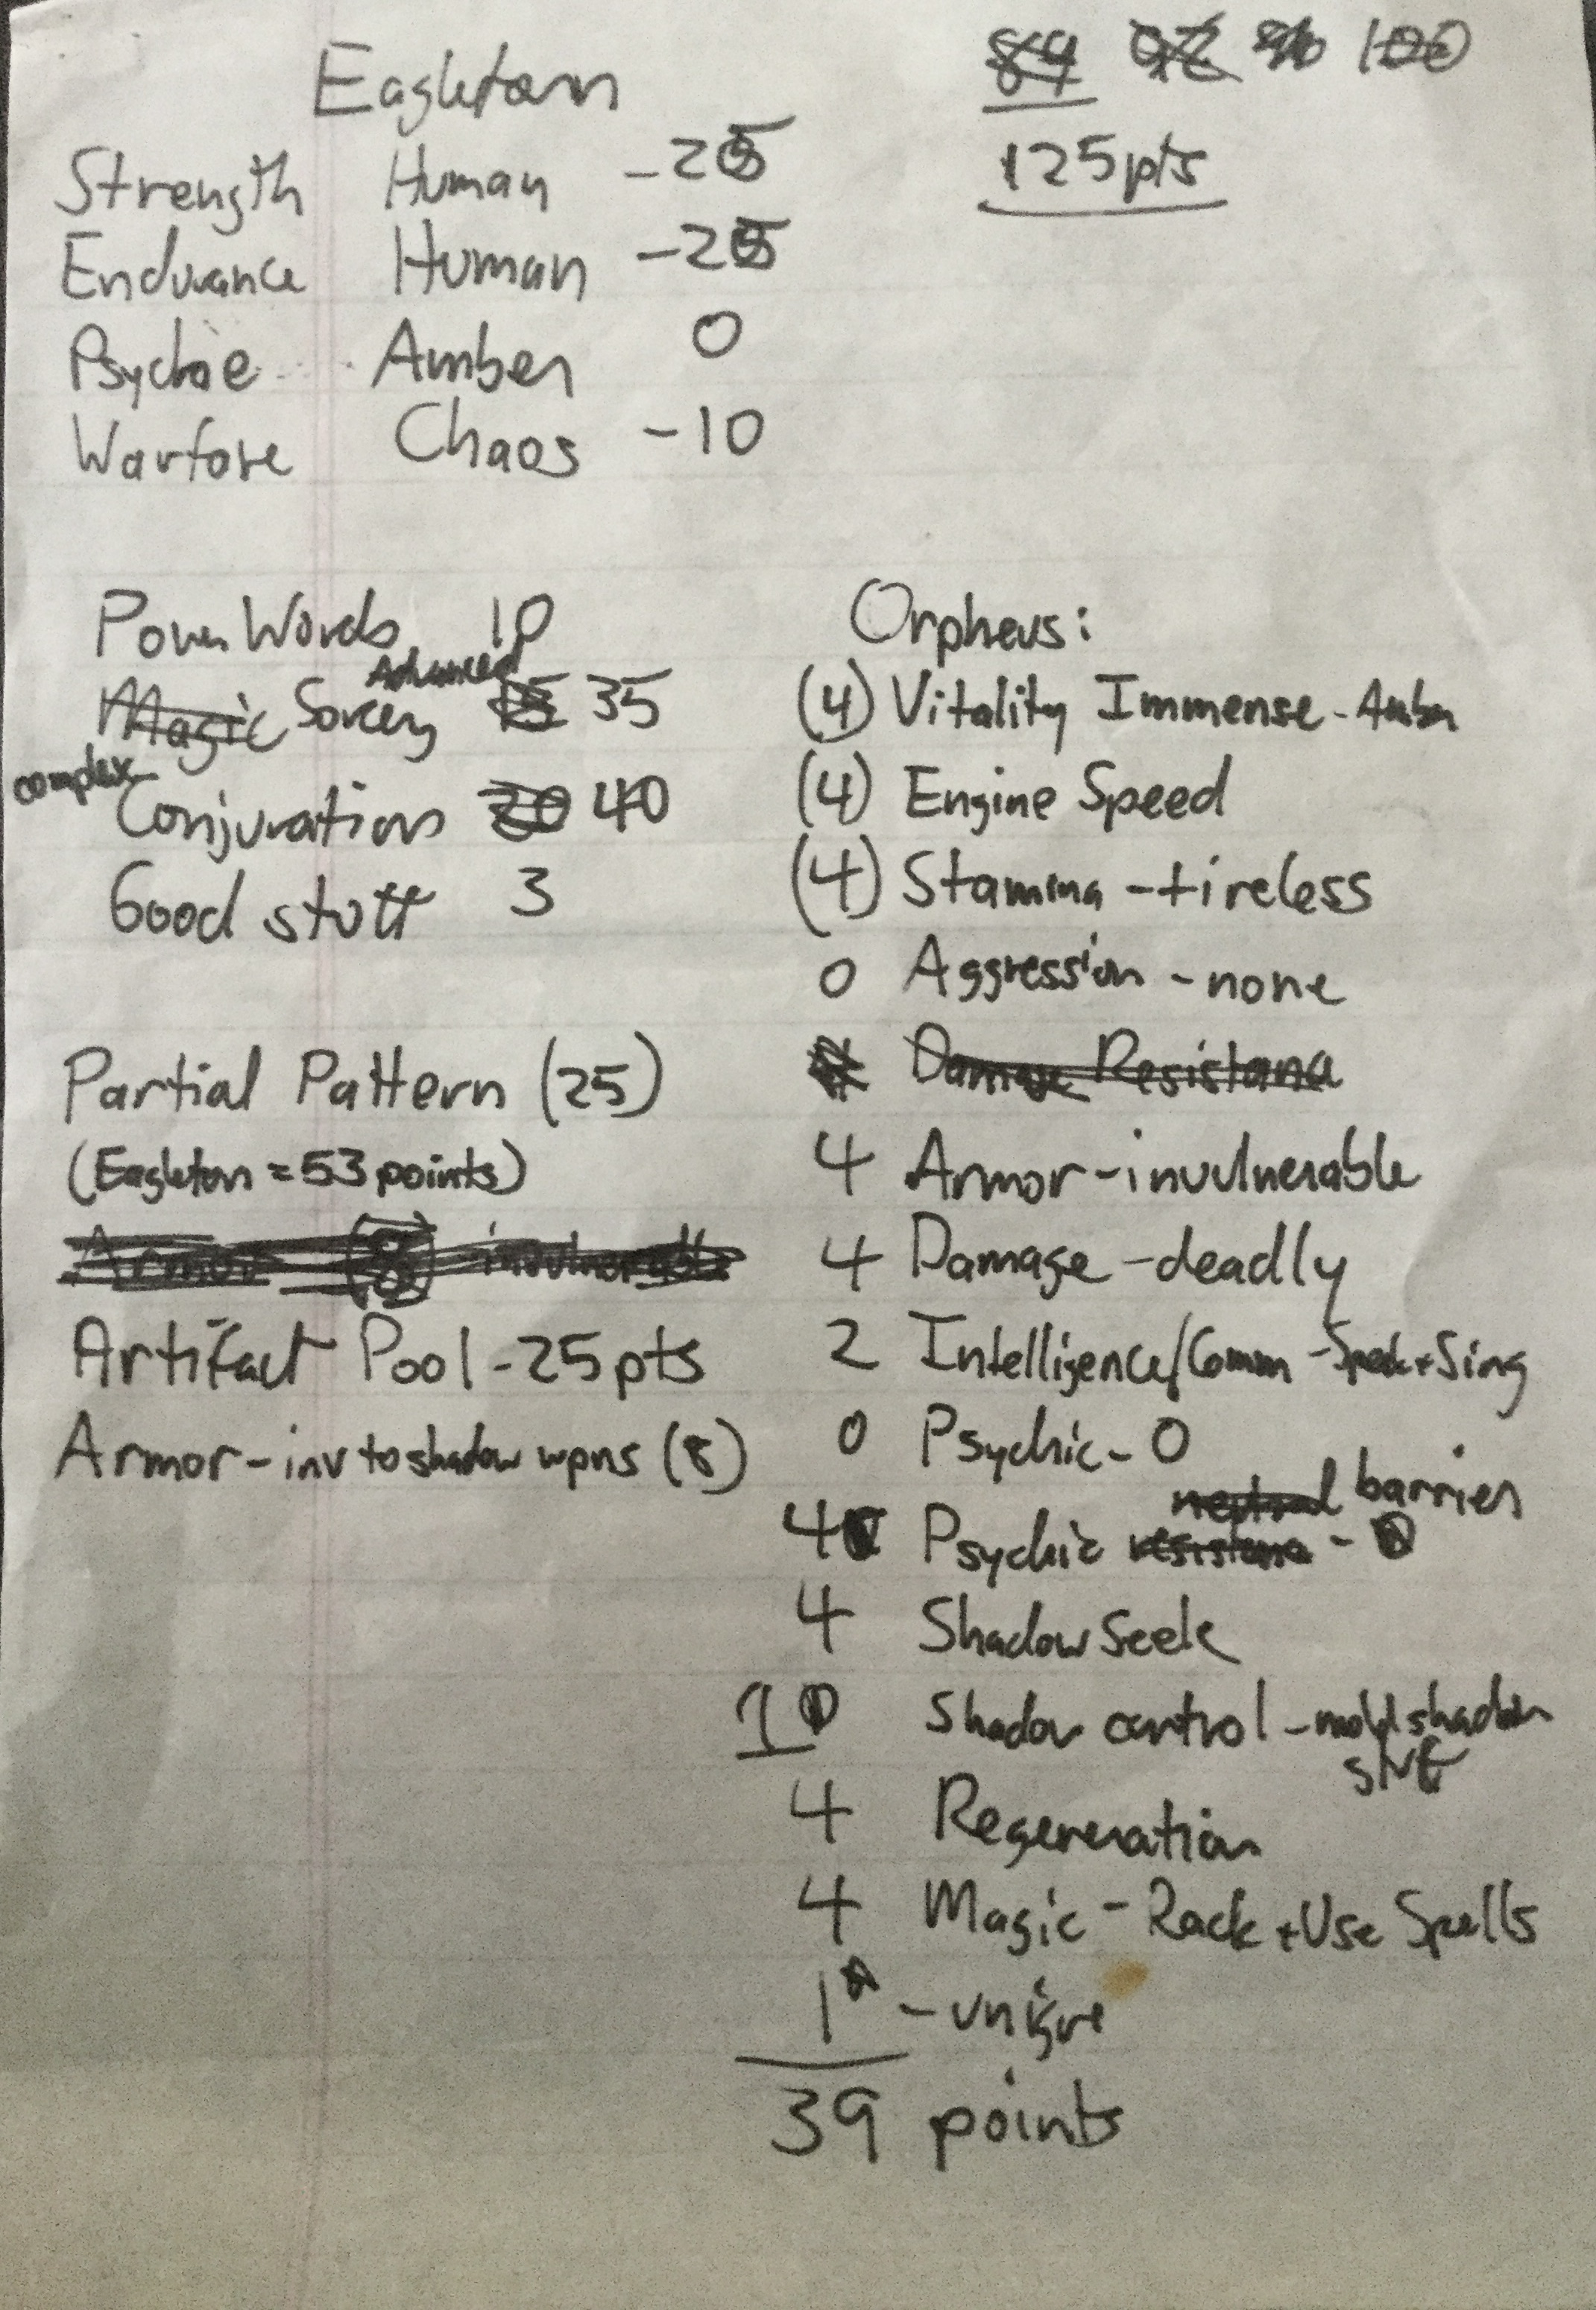 Eagleton
89 92 96 100
125pts
Strength Human -25
Endurance Human -25
Psyche Amber 0
Warfare Chaos -10
Power Words 10
Magic Sorcery Advanced 15 35
complex Conjuration 20 40
Good stuff 3
Partial Pattern (25)
(Eagleton = 53 points)
Armor (8) invulnerable
Artifact Pool - 25 pts
Armor - inv to shadow wpns (8)
Orpheus:
(4) Vitality Immense - Amber
(4) Engine Speed
(4) Stamina - tireless
0 Aggression - none
Damage Resistance
4 Armor - invulnerable
4 Damage - deadly
2 Intelligence/Comm - Speak + Sing
0 Psychic - 0
neutral barrier
4 Psychic resistance -
4 Shadow Seek
10 Shadow control - mold shadow
4 Regeneration
4 Magic - Rack + Use Spells
1 - unique
39 points